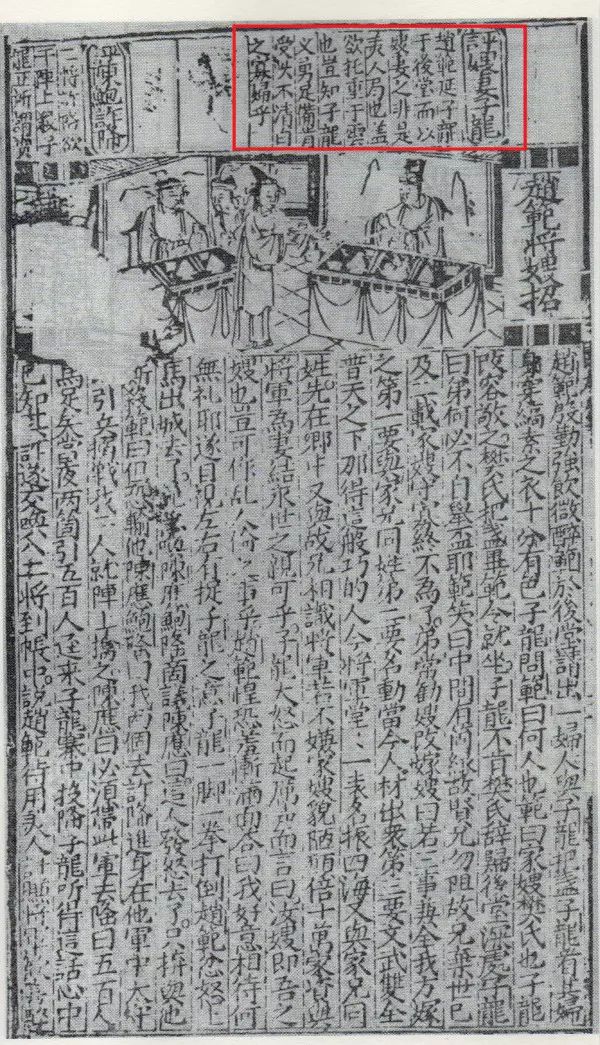 趙範延子龍
于後堂而以
嫂妻之非是
美人局也蓋
欲托重于雲
也豈知子龍
義勇足備肯
受失不清白
之寡婦乎
評陳鮑詐降
二將詐降欲
于陣上殺子
龍正所謂
趙範將嫂招
趙範殷勤強飲微醉範於後堂請出一婦人與子龍把盞子龍看其婦
身穿縞素之衣十分有色子龍問範曰何人也範曰家嫂樊氏也子龍
改容敬之樊氏把盞畢範令就坐子龍不肯樊氏辭歸後堂深處子龍
曰弟何必不自舉盃耶範笑曰中間有箇緣故賢兄勿阻故兄棄世已
及三載家嫂守寡終不為了弟常勸嫂改嫁嫂曰若三事兼全我方嫁
之第一要與家兄同姓第二要名動當今人材出衆第三要文武雙全
普天之下那得這般巧的人今將軍堂堂一表名振四海又與家兄同
姓先在鄉中又與故兄相識將軍若不嫌家嫂貌陋願倍十萬家資與
將軍為妻結永世之親可乎子龍大怒而起厲聲而言曰汝嫂即吾之
嫂也豈可作亂人倫之事乎趙範惶恐羞慚滿面答曰我好意相待何
無礼耶遂目視左右有捉子龍之意子龍一脚一拳打倒趙範忿怒上
馬出城去了陳應鮑隆商議陳應曰這人發怒去了只拚與他
厮殺範曰但恐輸他陳應鮑隆曰我兩個去詐降進身在他軍中太守
引兵搦戰我二人就陣上擒之陳應曰必須帶些軍去隆曰五百人
馬足矣當夜兩箇引五百人逕來子龍寨中投降子龍听得這話心中
已知其詐遂交喚入二將到帳中說趙範佔用美人計